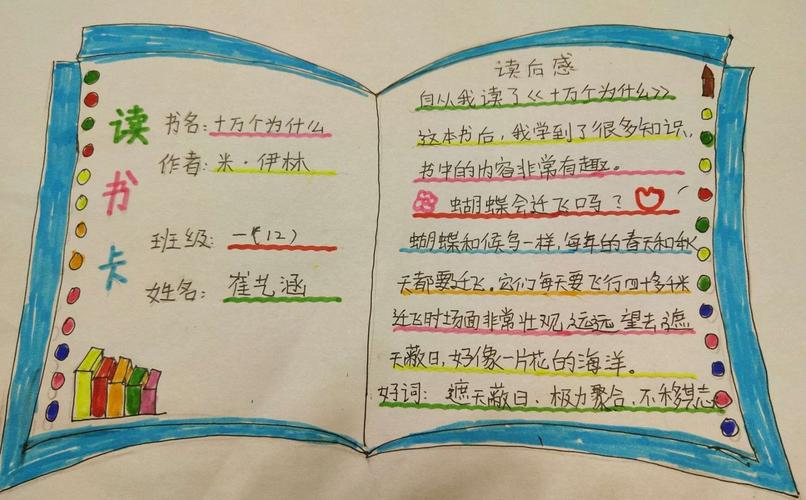 读书卡
书名：十万个为什么
作者：米·伊林
班级：一（12）
姓名：崔艺涵
读后感
自从我读了《十万个为什么》
这本书后，我学到了很多知识，
书中的内容非常有趣。
蝴蝶会迁飞吗？
蝴蝶和候鸟一样，每年的春天和秋
天都要迁飞。它们每天要飞行四十多千米
迁飞时场面非常壮观，远远望去遮
天蔽日，好像一片花的海洋。
好词：遮天蔽日、极力聚合、不移其志